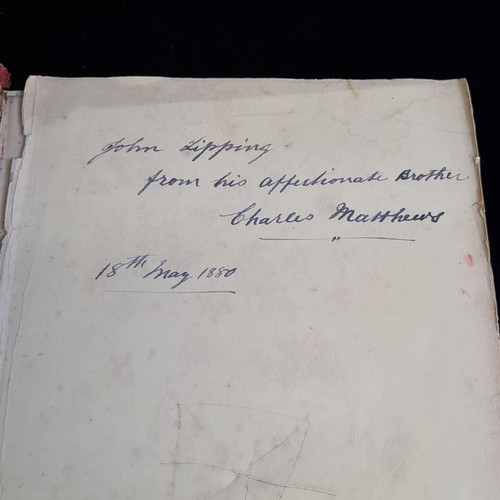 John Lipping
from his affectionate Brother
Charles Matthews
18th May 1880